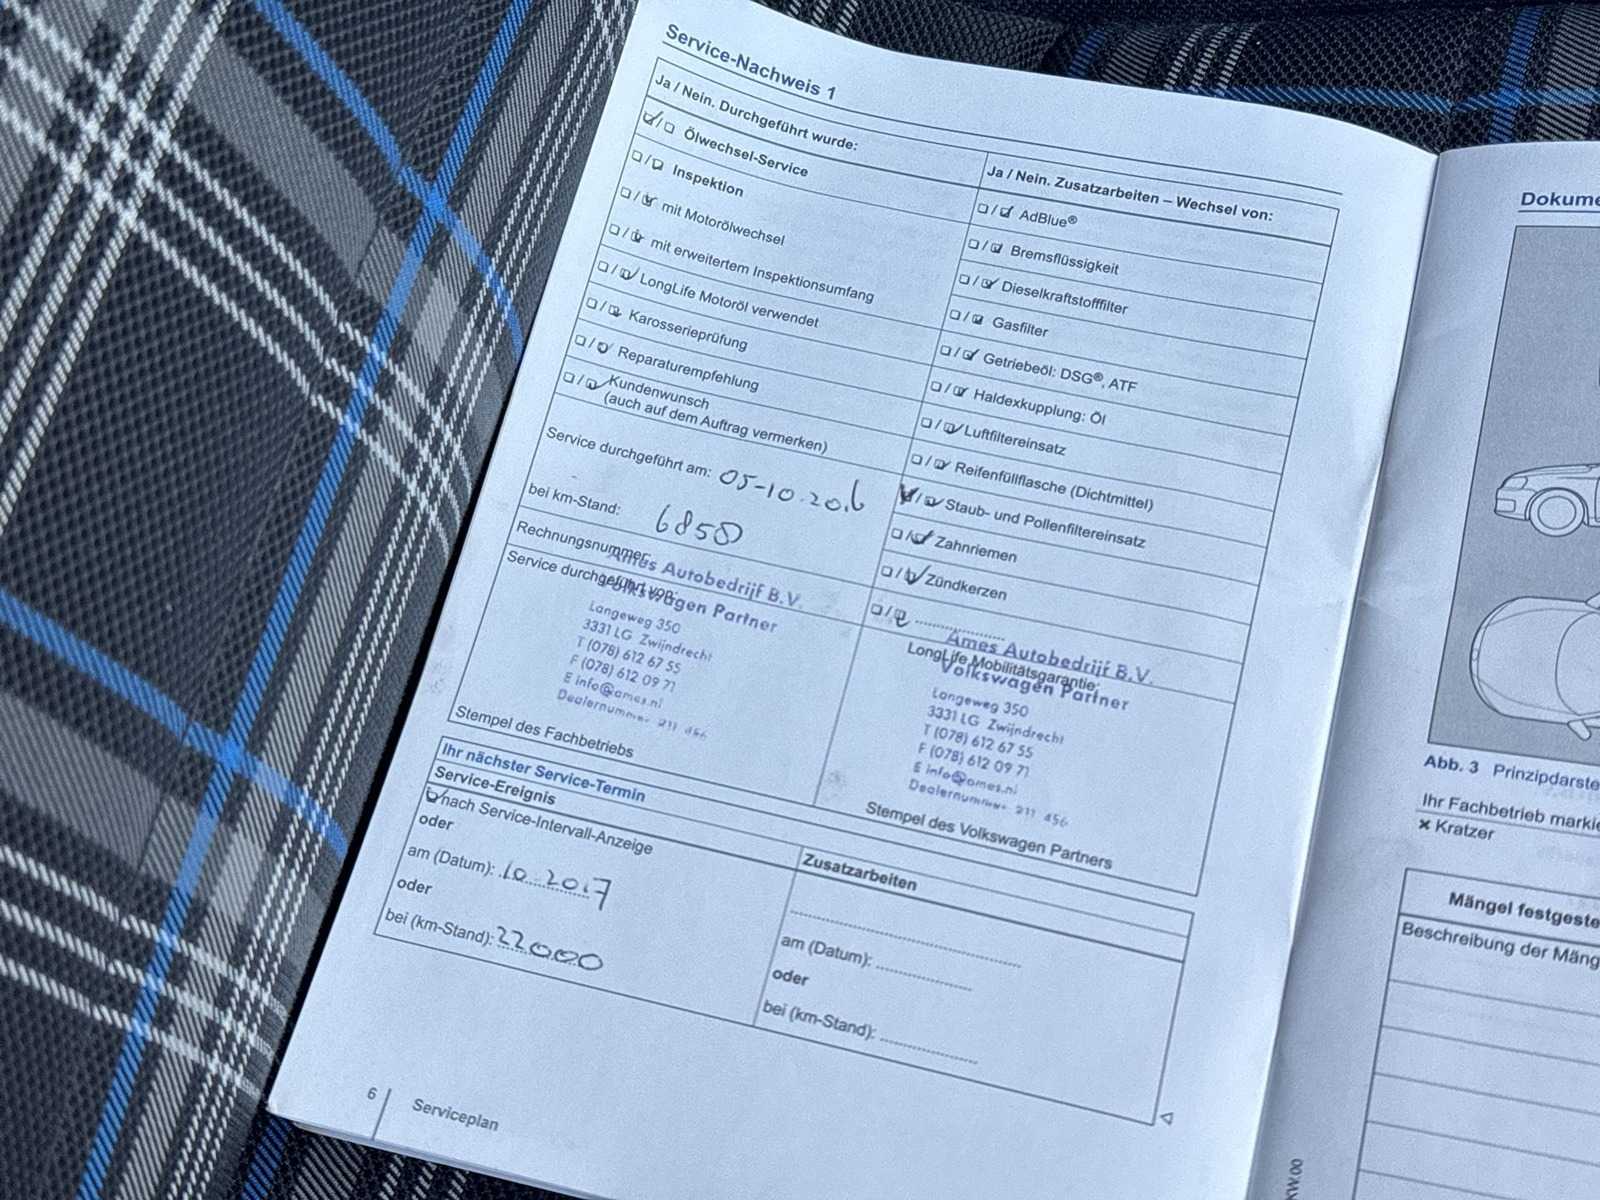 Service-Nachweis 1
Ja / Nein. Durchgeführt wurde:
Ölwechsel-Service
Inspektion
mit Motorölwechsel
mit erweitertem Inspektionsumfang
LongLife Motoröl verwendet
Karosserieprüfung
Reparaturempfehlung
Kundenwunsch
(auch auf dem Auftrag vermerken)
Service durchgeführt am: 05-10-2016
bei km-Stand: 6858
Rechnungsnummer:
Service durchgeführt von:
Ames Autobedrijf B.V.
Volkswagen Partner
Langeweg 350
3331 LG Zwijndrecht
T (078) 612 67 55
F (078) 612 09 71
E info@ames.nl
Dealernummer 211 456
Stempel des Fachbetriebs
Ja / Nein. Zusatzarbeiten – Wechsel von:
AdBlue®
Bremsflüssigkeit
Dieselkraftstofffilter
Gasfilter
Getriebeöl: DSG®, ATF
Haldexkupplung: Öl
Luftfiltereinsatz
Reifenfüllflasche (Dichtmittel)
Staub- und Pollenfiltereinsatz
Zahnriemen
Zündkerzen
LongLife Mobilitätsgarantie:
Ames Autobedrijf B.V.
Volkswagen Partner
Langeweg 350
3331 LG Zwijndrecht
T (078) 612 67 55
F (078) 612 09 71
E info@ames.nl
Dealernummer 211 456
Stempel des Volkswagen Partners
Ihr nächster Service-Termin
Service-Ereignis
nach Service-Intervall-Anzeige
oder
am (Datum): 10-2017
oder
bei (km-Stand): 22000
Zusatzarbeiten
am (Datum):
oder
bei (km-Stand):
6
Serviceplan
Dokume
Abb. 3 Prinzipdarste
Ihr Fachbetrieb markie
× Kratzer
Mängel festgeste
Beschreibung der Mäng
KW.00